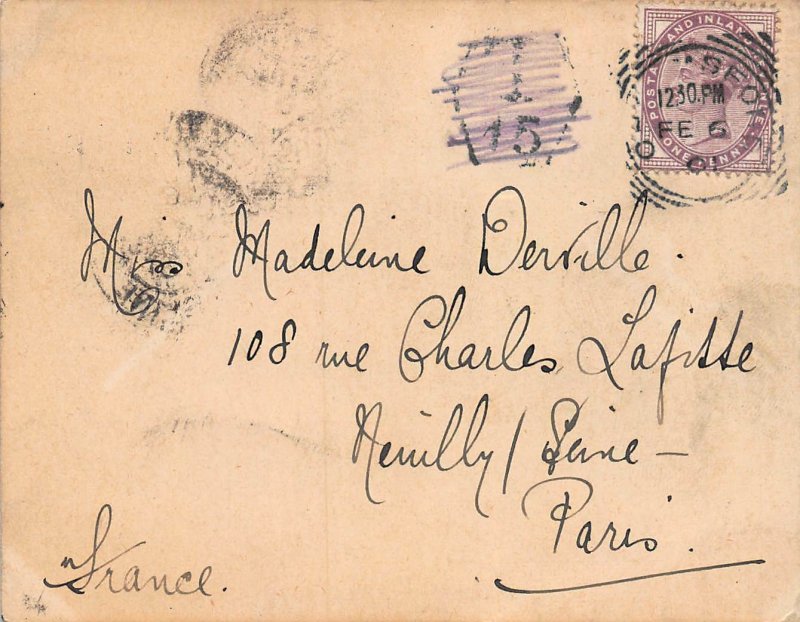 POSTAGE AND INLAND REVENUE
ONE PENNY
12.30.PM
FE 6
01
T
15
Mlle Madeleine Derville.
108 rue Charles Lafitte
Neuilly / Seine –
Paris.
France.